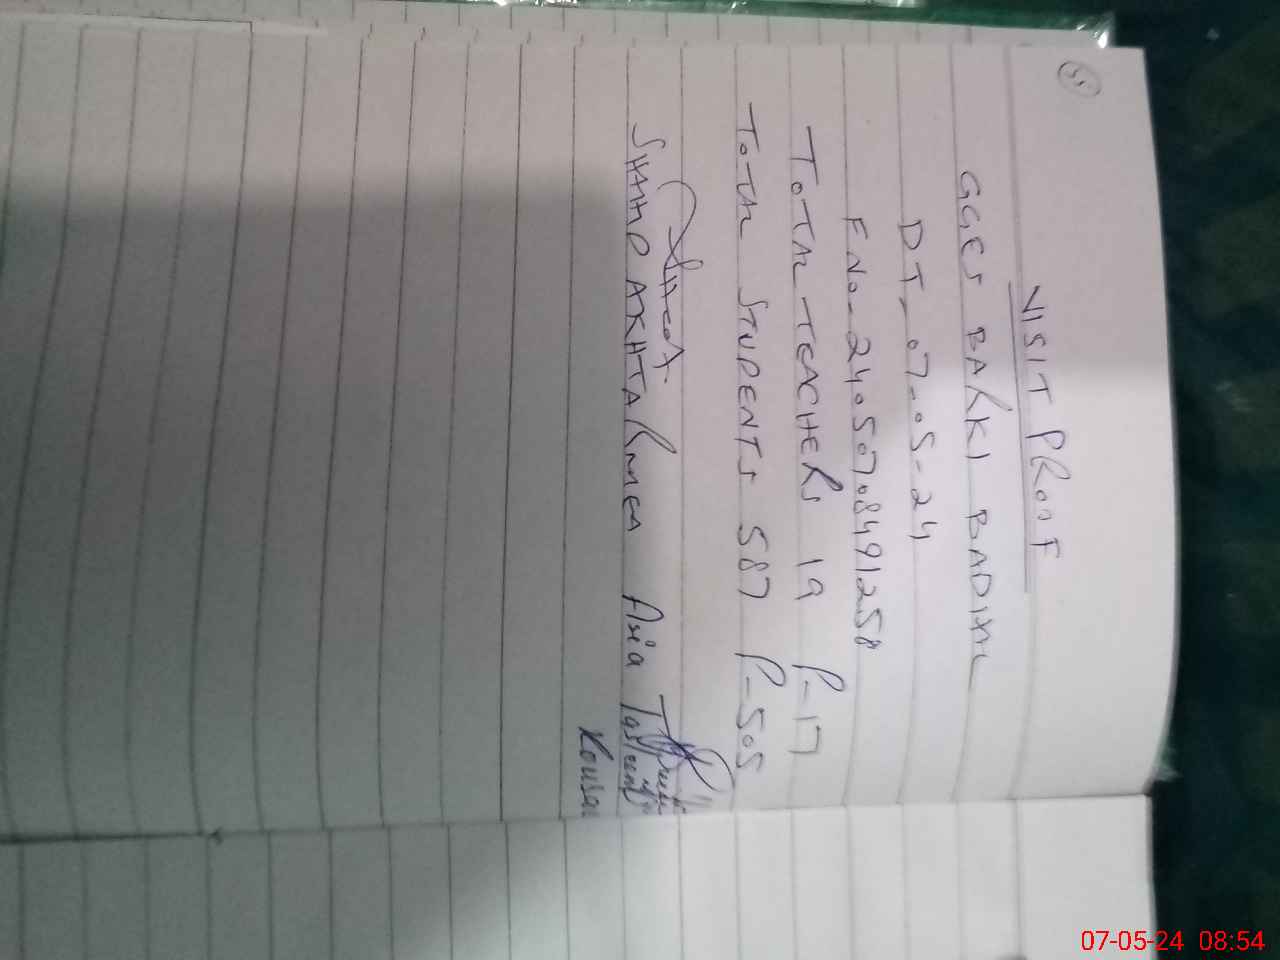 VISIT PROOF
GGES BARKI BADHAL
DT-07-05-24
F No- 24050708491258
TOTAL TEACHERS 19 P-17
TOTAL STUDENTS 587 P-505
SHAHID AKHTAR Asia Tasleem
Kousar
07-05-24 08:54